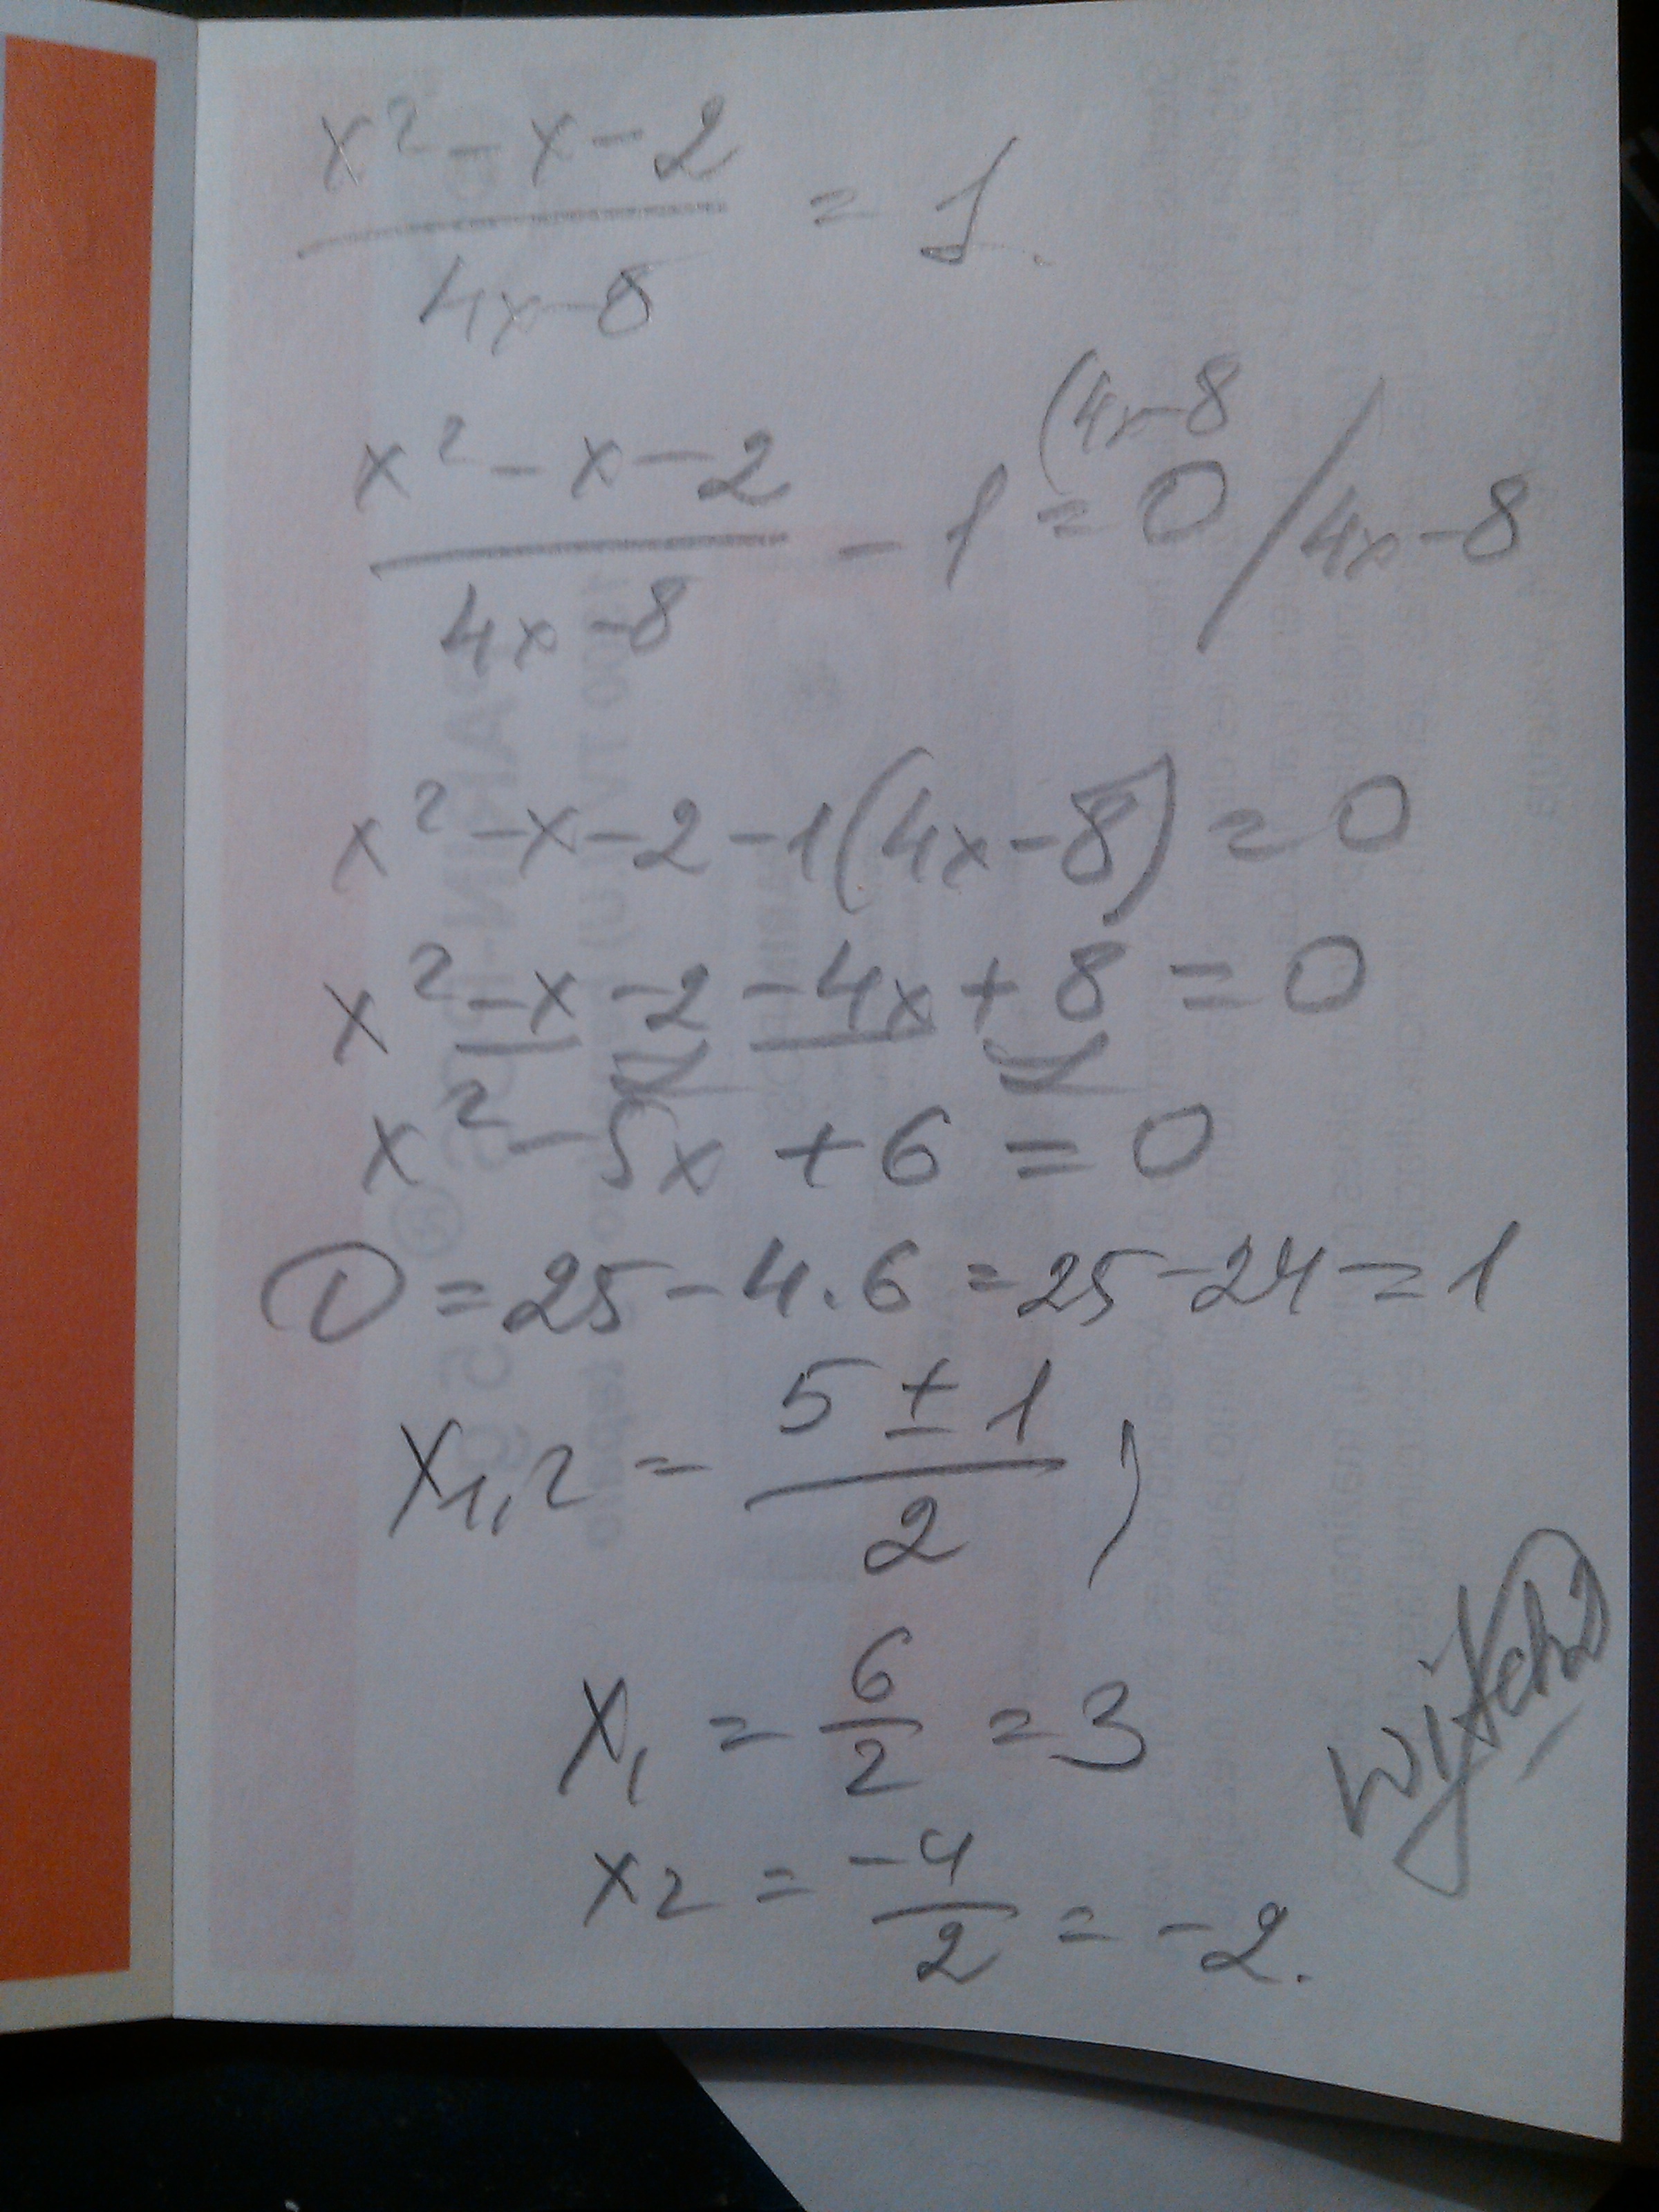 x² - x - 2
4x-8
= 1.
x² - x - 2
4x - 8
- 1 = 0 / 4x - 8
(4x-8
x² - x - 2 - 1(4x - 8) = 0
x² - x - 2 - 4x + 8 = 0
x² - 5x + 6 = 0
D = 25 - 4 . 6 = 25 - 24 = 1
x1,2 = 5 ± 1
2
)
x1 = 6
2
= 3
x2 = -4
2
= -2.